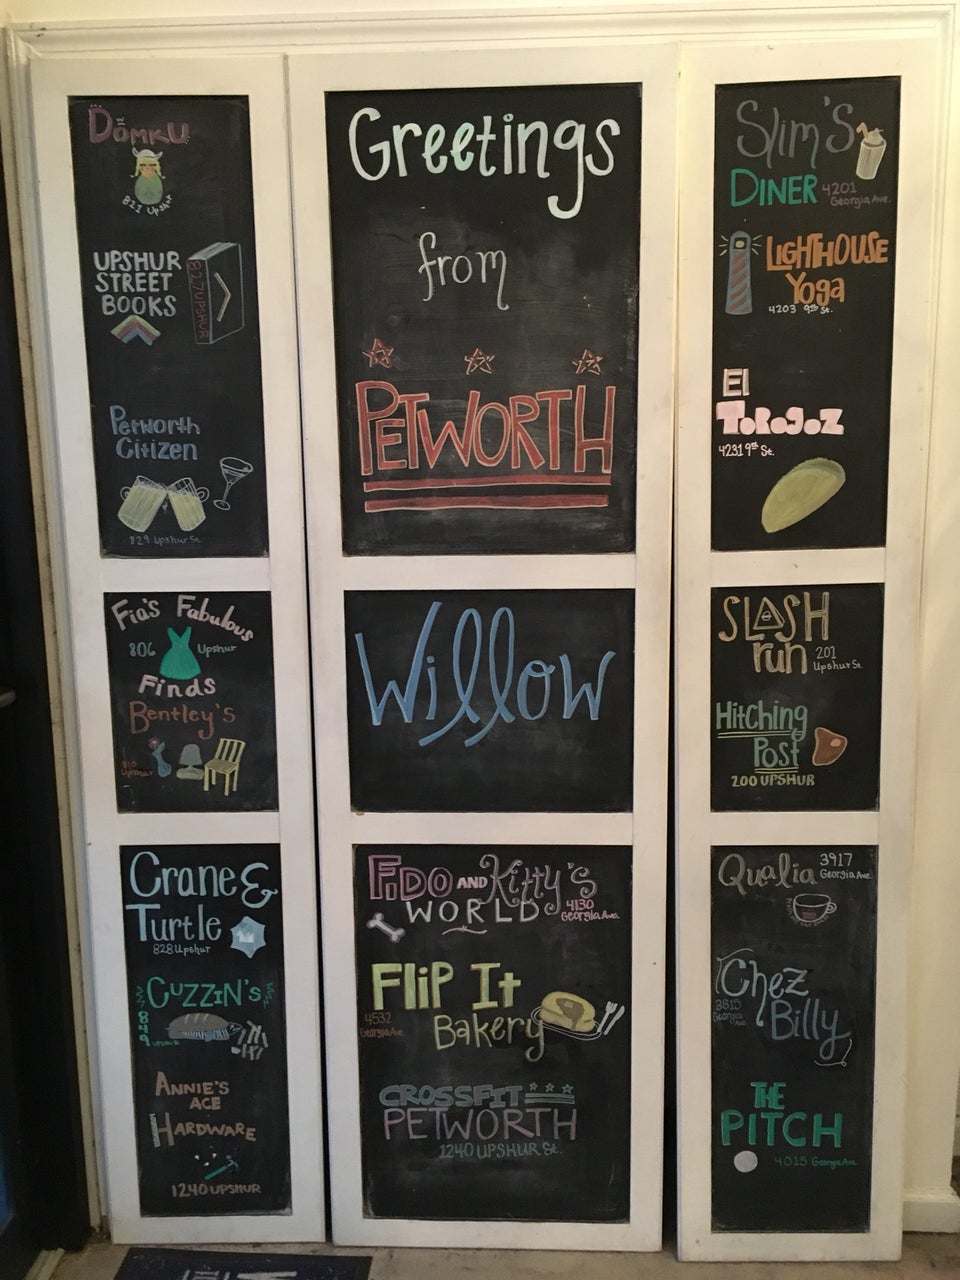 DōMKU
821 Upshur
UPSHUR
STREET
BOOKS
827 UPSHUR
Petworth
Citizen
829 Upshur St.
Fia's Fabulous
806 Upshur
Finds
Bentley's
810
Upshur
Crane &
Turtle
828 Upshur
CUZZIN's
849
UPSHUR St
ANNIE'S
ACE
HARDWARE
1240 UPSHUR
Greetings
from
PETWORTH
Willow
FIDO AND Kitty's
WORLD 4130
Georgia Ave.
FliP It
Bakery
4532
Georgia Ave.
CROSSFIT
PETWORTH
1240 UPSHUR St.
Slim's
DINER 4201
Georgia Ave.
LIGHTHOUSE
Yoga
4203 9th St.
El
ToRoGoZ
4231 9th St.
SLASH
run 201
Upshur St.
HitcHing
Post
200 UPSHUR
Qualia 3917
Georgia Ave.
Chez
Billy
3815
Georgia
Ave.
THE
PITCH
4015 Georgia Ave.